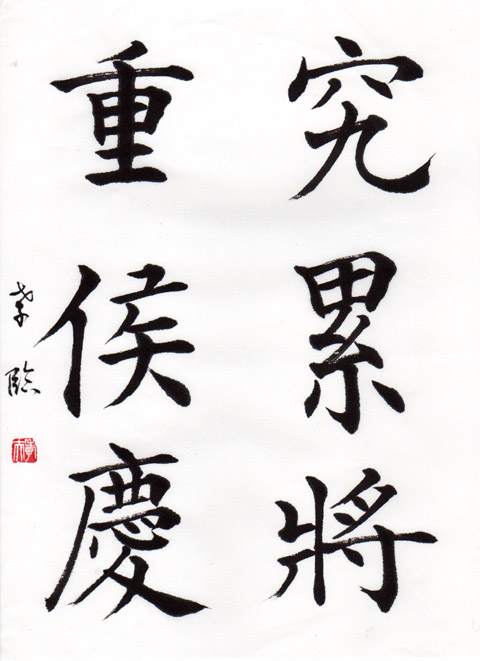 究累將
重侯慶
臨